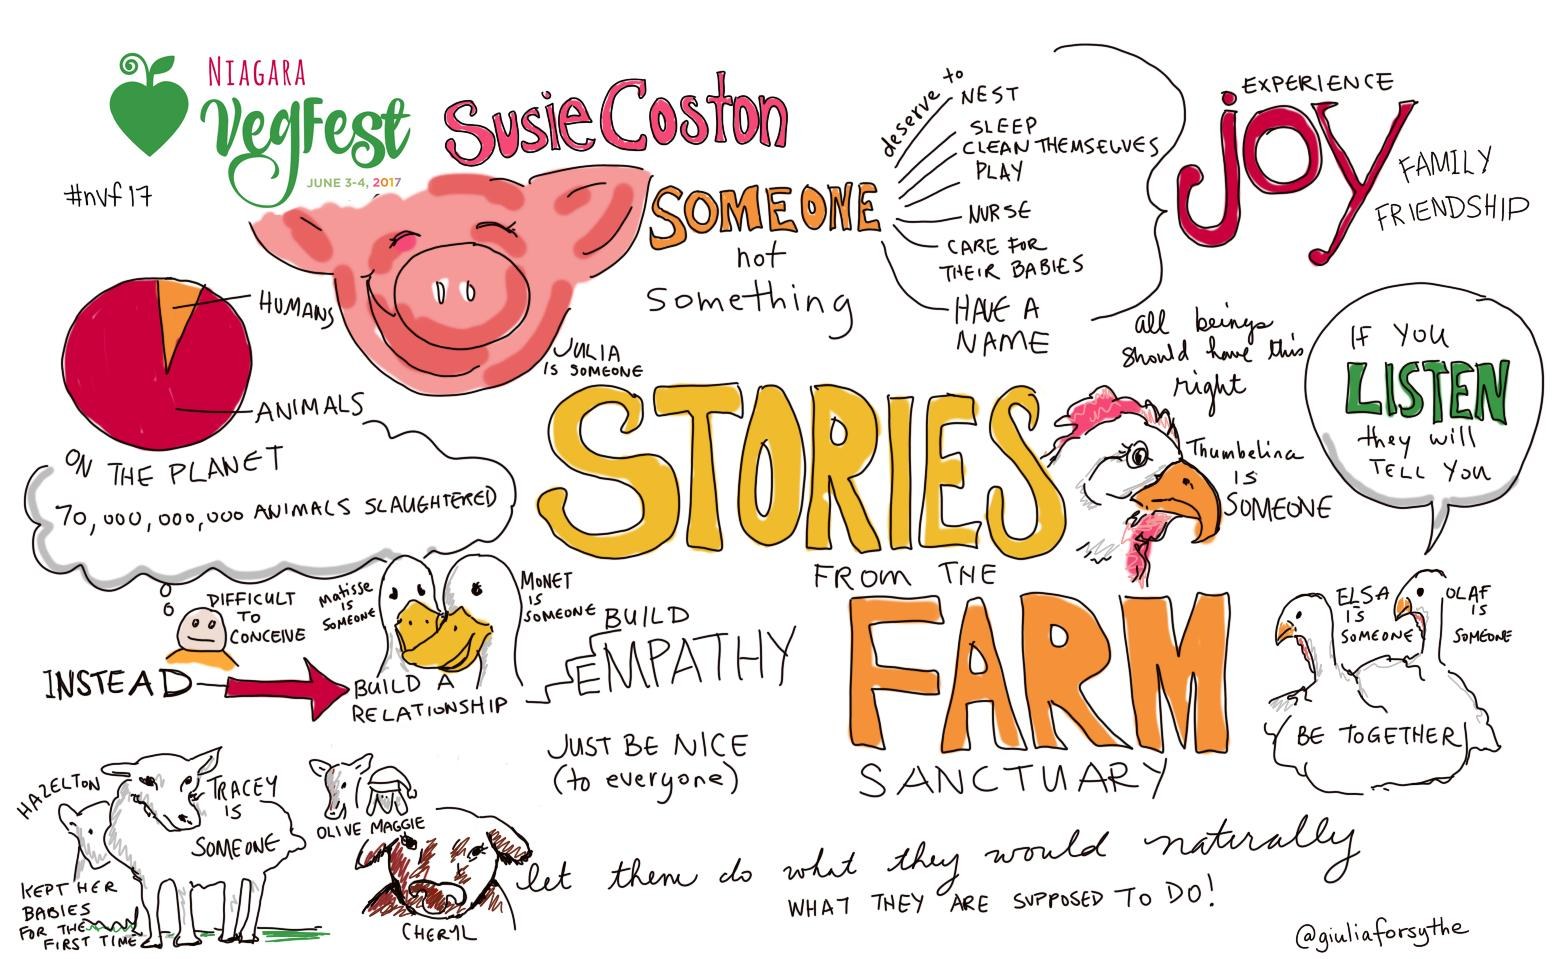 NIAGARA
VegFest
JUNE 3-4, 2017
#nvf17
Susie Coston
SOMEONE
not
something
deserve to
NEST
SLEEP
CLEAN THEMSELVES
PLAY
NURSE
CARE FOR
THEIR BABIES
HAVE A
NAME
EXPERIENCE
joy
FAMILY
FRIENDSHIP
all beings
should have this
right
HUMANS
ANIMALS
ON THE PLANET
70,000,000,000 ANIMALS SLAUGHTERED
DIFFICULT
TO
CONCEIVE
JULIA
IS SOMEONE
STORIES
FROM THE
FARM
SANCTUARY
Thumbelina
IS
SOMEONE
IF YOU
LISTEN
they will
TELL YOU
INSTEAD
Matisse
IS
SOMEONE
MONET
IS
SOMEONE
BUILD A
RELATIONSHIP
BUILD
EMPATHY
ELSA
IS
SOMEONE
OLAF
IS
SOMEONE
BE TOGETHER
JUST BE NICE
(to everyone)
HAZELTON
TRACEY
IS
SOMEONE
KEPT HER
BABIES
FOR THE
FIRST TIME
OLIVE MAGGIE
CHERYL
let them do what they would naturally
WHAT THEY ARE SUPPOSED TO DO!
@giuliaforsythe